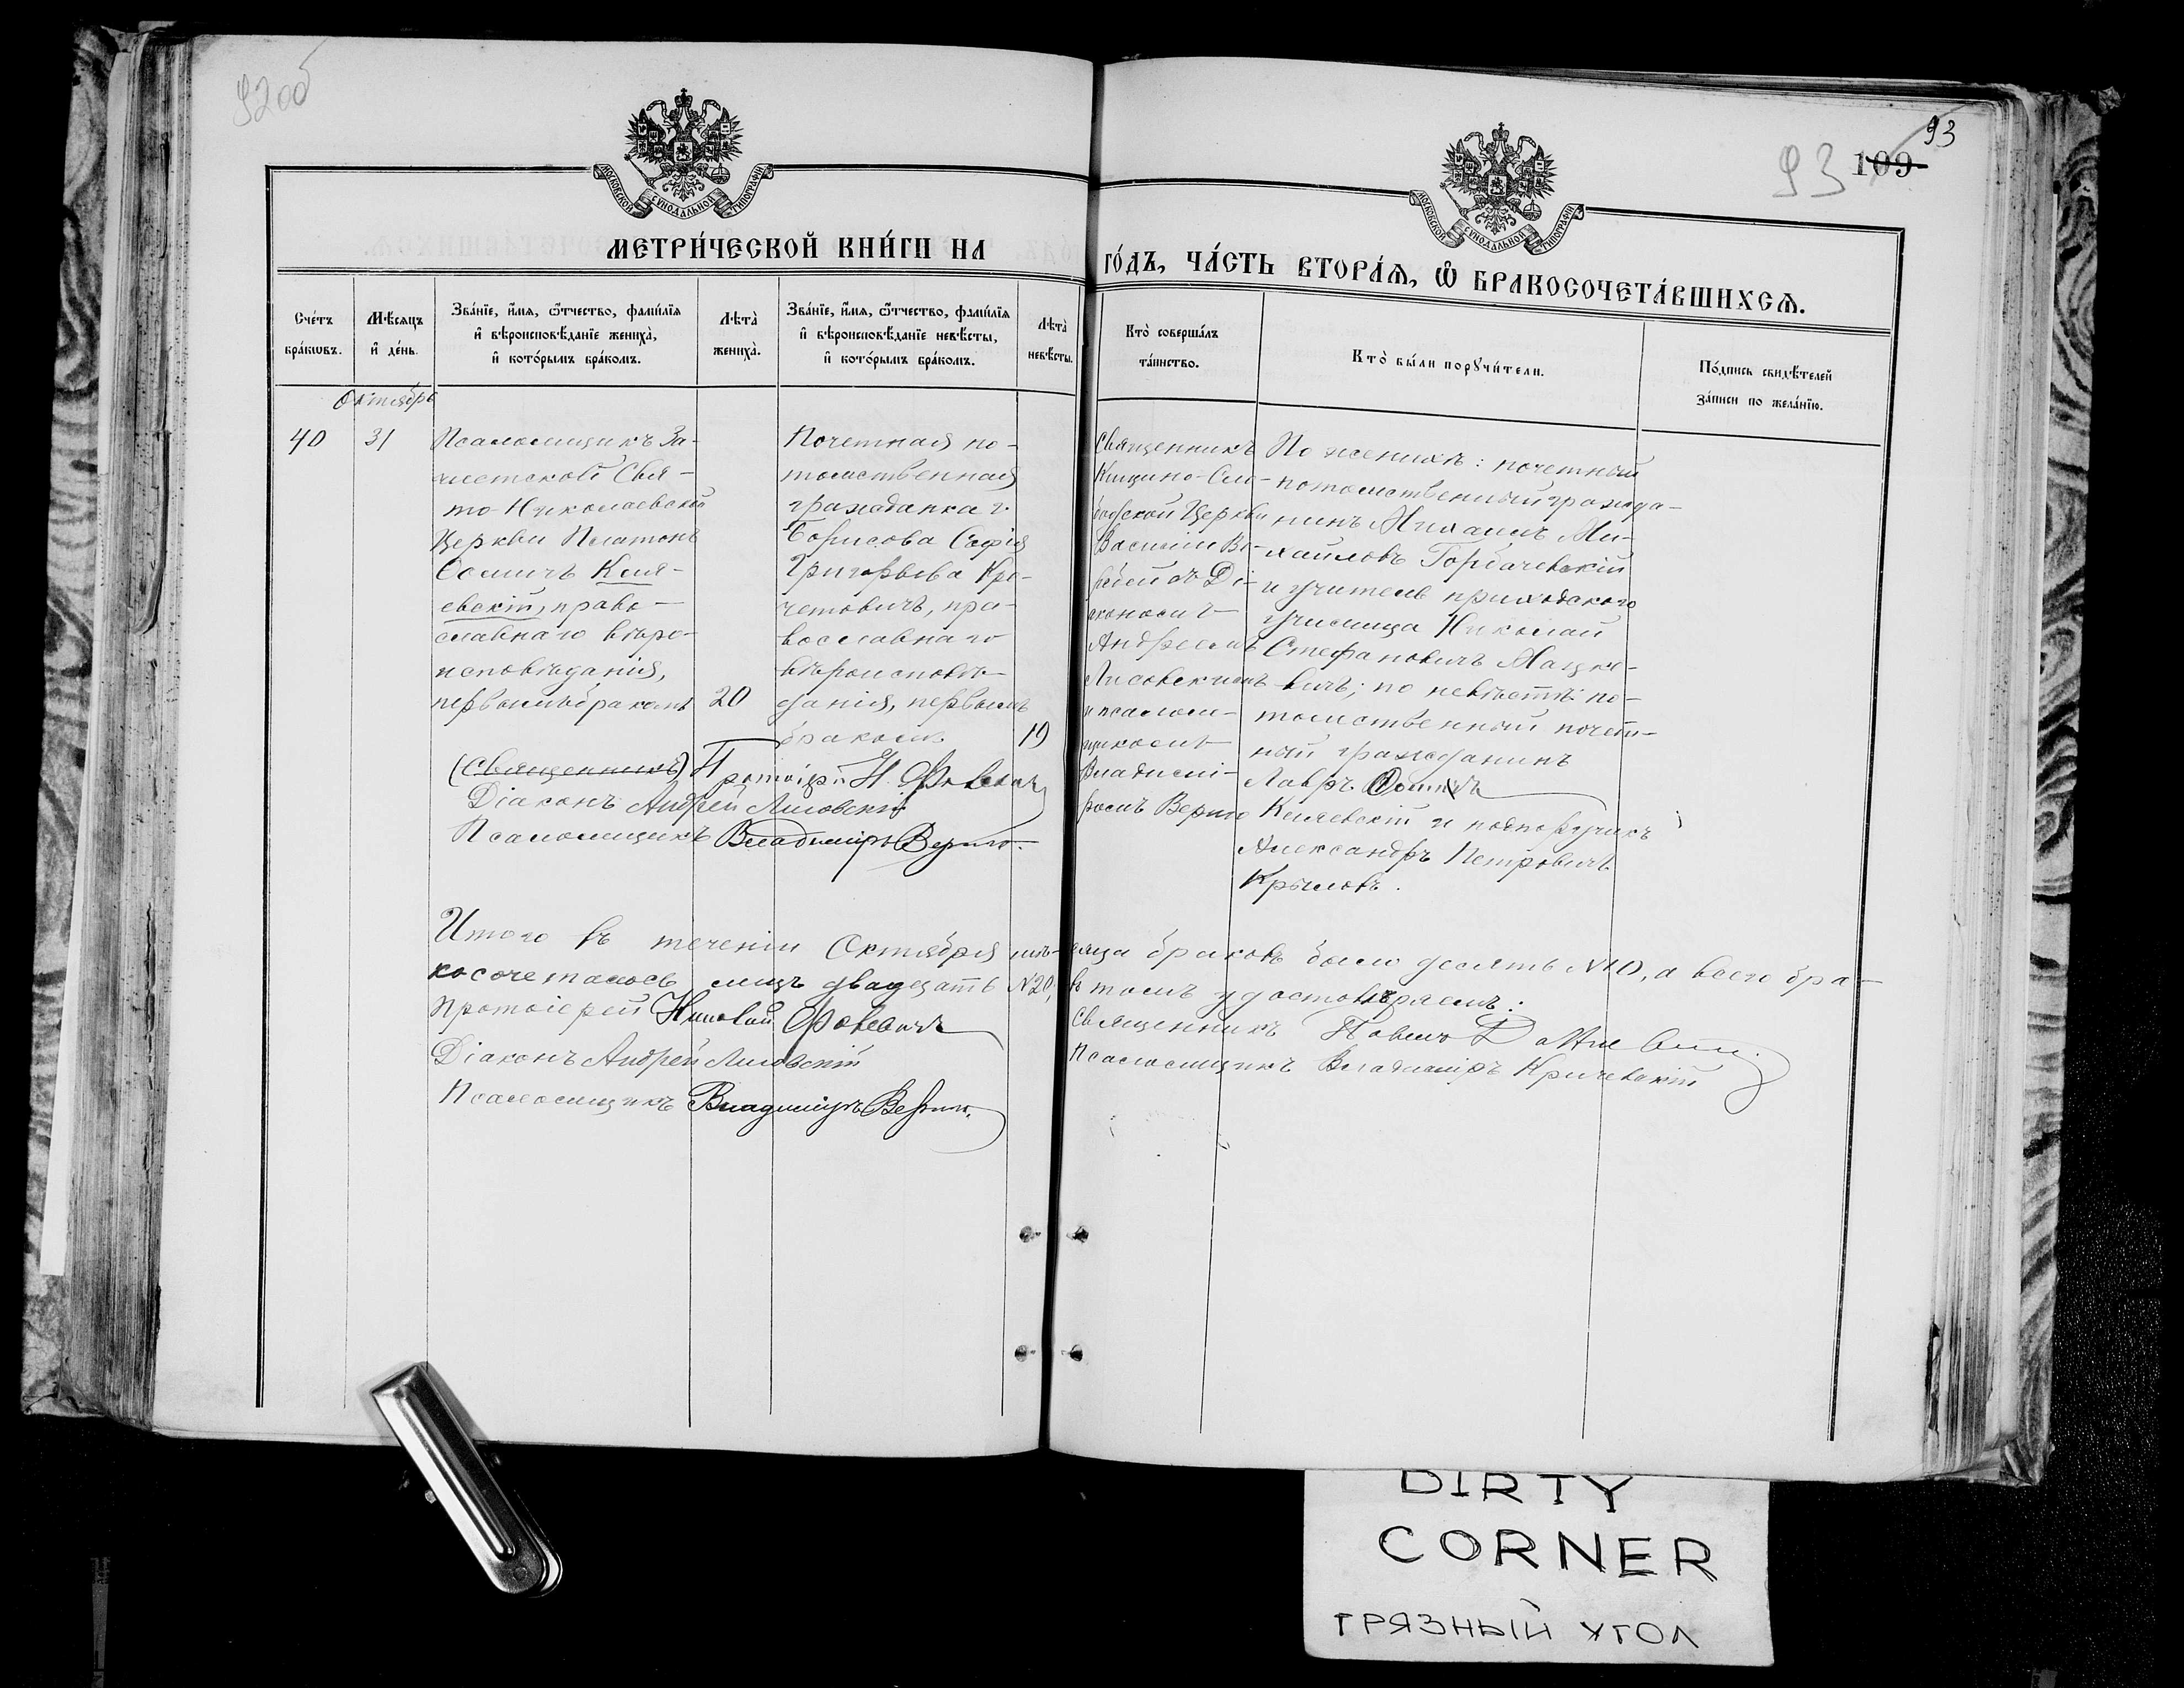 92об
93
93 109
МОСКОВСКОЙ СѴНОДАЛЬНОЙ ТИПОГРАФІИ
МОСКОВСКОЙ СѴНОДАЛЬНОЙ ТИПОГРАФІИ
МЕТРИ́ЧЕСКОЙ КНИ́ГИ НА
ГО́ДЪ, ЧА́СТЬ ВТОРА́Ѧ, Ѽ БРАКОСОЧЕТА́ВШИХСѦ.
Сче́тъ бра́кѡвъ.
Мѣ́сѧцъ и҆ де́нь.
Зва́нїе, и҆́мѧ, ѻ҆́тчество, фами́лїѧ и҆ вѣроисповѣ́данїе жениха̀, и҆ кото́рымъ бра́комъ.
Лѣта̀ жениха̀.
Зва́нїе, и҆́мѧ, ѻ҆́тчество, фами́лїѧ и҆ вѣроисповѣ́данїе невѣ́сты, и҆ кото́рымъ бра́комъ.
Лѣта̀ невѣ́сты.
Кто̀ соверша́лъ та́инство.
Кто̀ бы́ли порꙋчи́тели.
По́дпись свидѣ́телей за́писи по жела́нїю.
Октябрь
40
31
Псаломщикъ За-
чистской Свя-
то-Николаевской
Церкви Платонъ
Ѳомичъ Кля-
евскій, право-
славнаго вѣро-
исповѣданія,
первымъ бракомъ
20
Почетная по-
томственная
гражданка г.
Борисова Софія
Григорьева Кро-
четовичъ, пра-
вославнаго
вѣроисповѣ-
данія, первымъ
бракомъ
19
Священникъ
Кищино-Сло-
бодской Церкви
Василій
съ Ді-
акономъ
Андреемъ
Лисовскимъ
и псалом-
щикомъ
Владимі-
ромъ Верыго
По женихѣ: почетный
потомственный гражда-
нинъ Михаилъ Ми-
хайловъ Горбачевскій
и учитель приходскаго
училища Николай
Стефановичъ Мацке-
вичъ; по невѣстѣ по-
томственный почет-
ный гражданинъ
Лавръ Ѳомичъ
Кляевскій и подпоручикъ
Александръ Петровичъ
Крыловъ.
(Священникъ) Протоіерей Н.
Діаконъ Андрей Лисовскій
Псаломщикъ Владиміръ Верыго.
Итого въ теченіи Октября мѣ-
сяца браковъ было десять №10, а всего бра-
косочеталось лицъ двадцать №20,
въ томъ удостовѣряемъ:
Протоіерей Николай
Діаконъ Андрей Лисовскій
Псаломщикъ Владиміръ Верыго.
Священникъ Павелъ
Псаломщикъ Владиміръ Кричевскій
DIRTY
CORNER
ГРЯЗНЫЙ УГОЛ